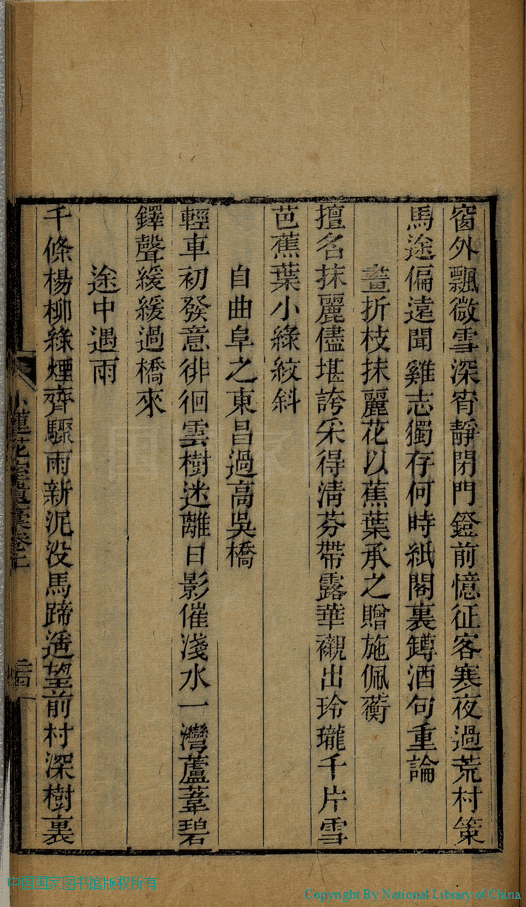 窗外飄微雪深宵靜閉門鐙前憶征客寒夜過荒村策
馬途偏遠聞雞志獨存何時紙閣裏鐏酒句重論
畫折枝抹麗花以蕉葉承之贈施佩蘅
擅名抹麗儘堪誇采得淸芬帶露華襯出玲瓏千片雪
芭蕉葉小綠紋斜
自曲阜之東昌過高吳橋
輕車初發意徘徊雲樹迷離日影催淺水一灣蘆葦碧
鐸聲緩緩過橋來
途中遇雨
千條楊柳綠煙齊驟雨新泥没馬蹄遥望前村深樹裏
小蓮花室遺稾卷二
中国国家图书馆版权所有
Copyright By National Library of China